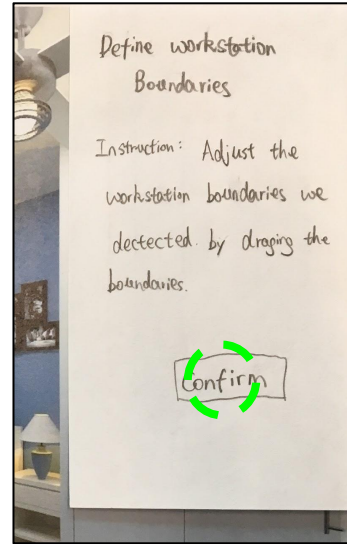 Define workstation
Boundaries
Instruction: Adjust the
workstation boundaries we
dectected. by draging the
boundaries.
Confirm